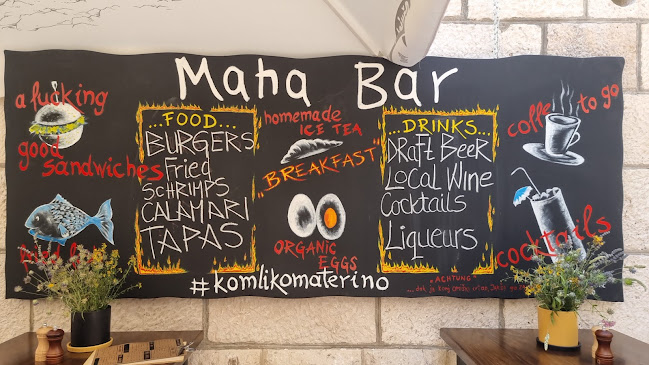 Maha Bar
a fucking
good
sandwiches
...FOOD...
BURGERS
Fried
SCHRIMPS
CALAMARI
TAPAS
homemade
ICE TEA
"BREAKFAST"
ORGANIC
EGGS
...DRINKS...
DRAFT BEER
LOCAL WINE
Cocktails
Liqueurs
coffe to go
cocktails
#komlikomaterino
"ACHTUNG"